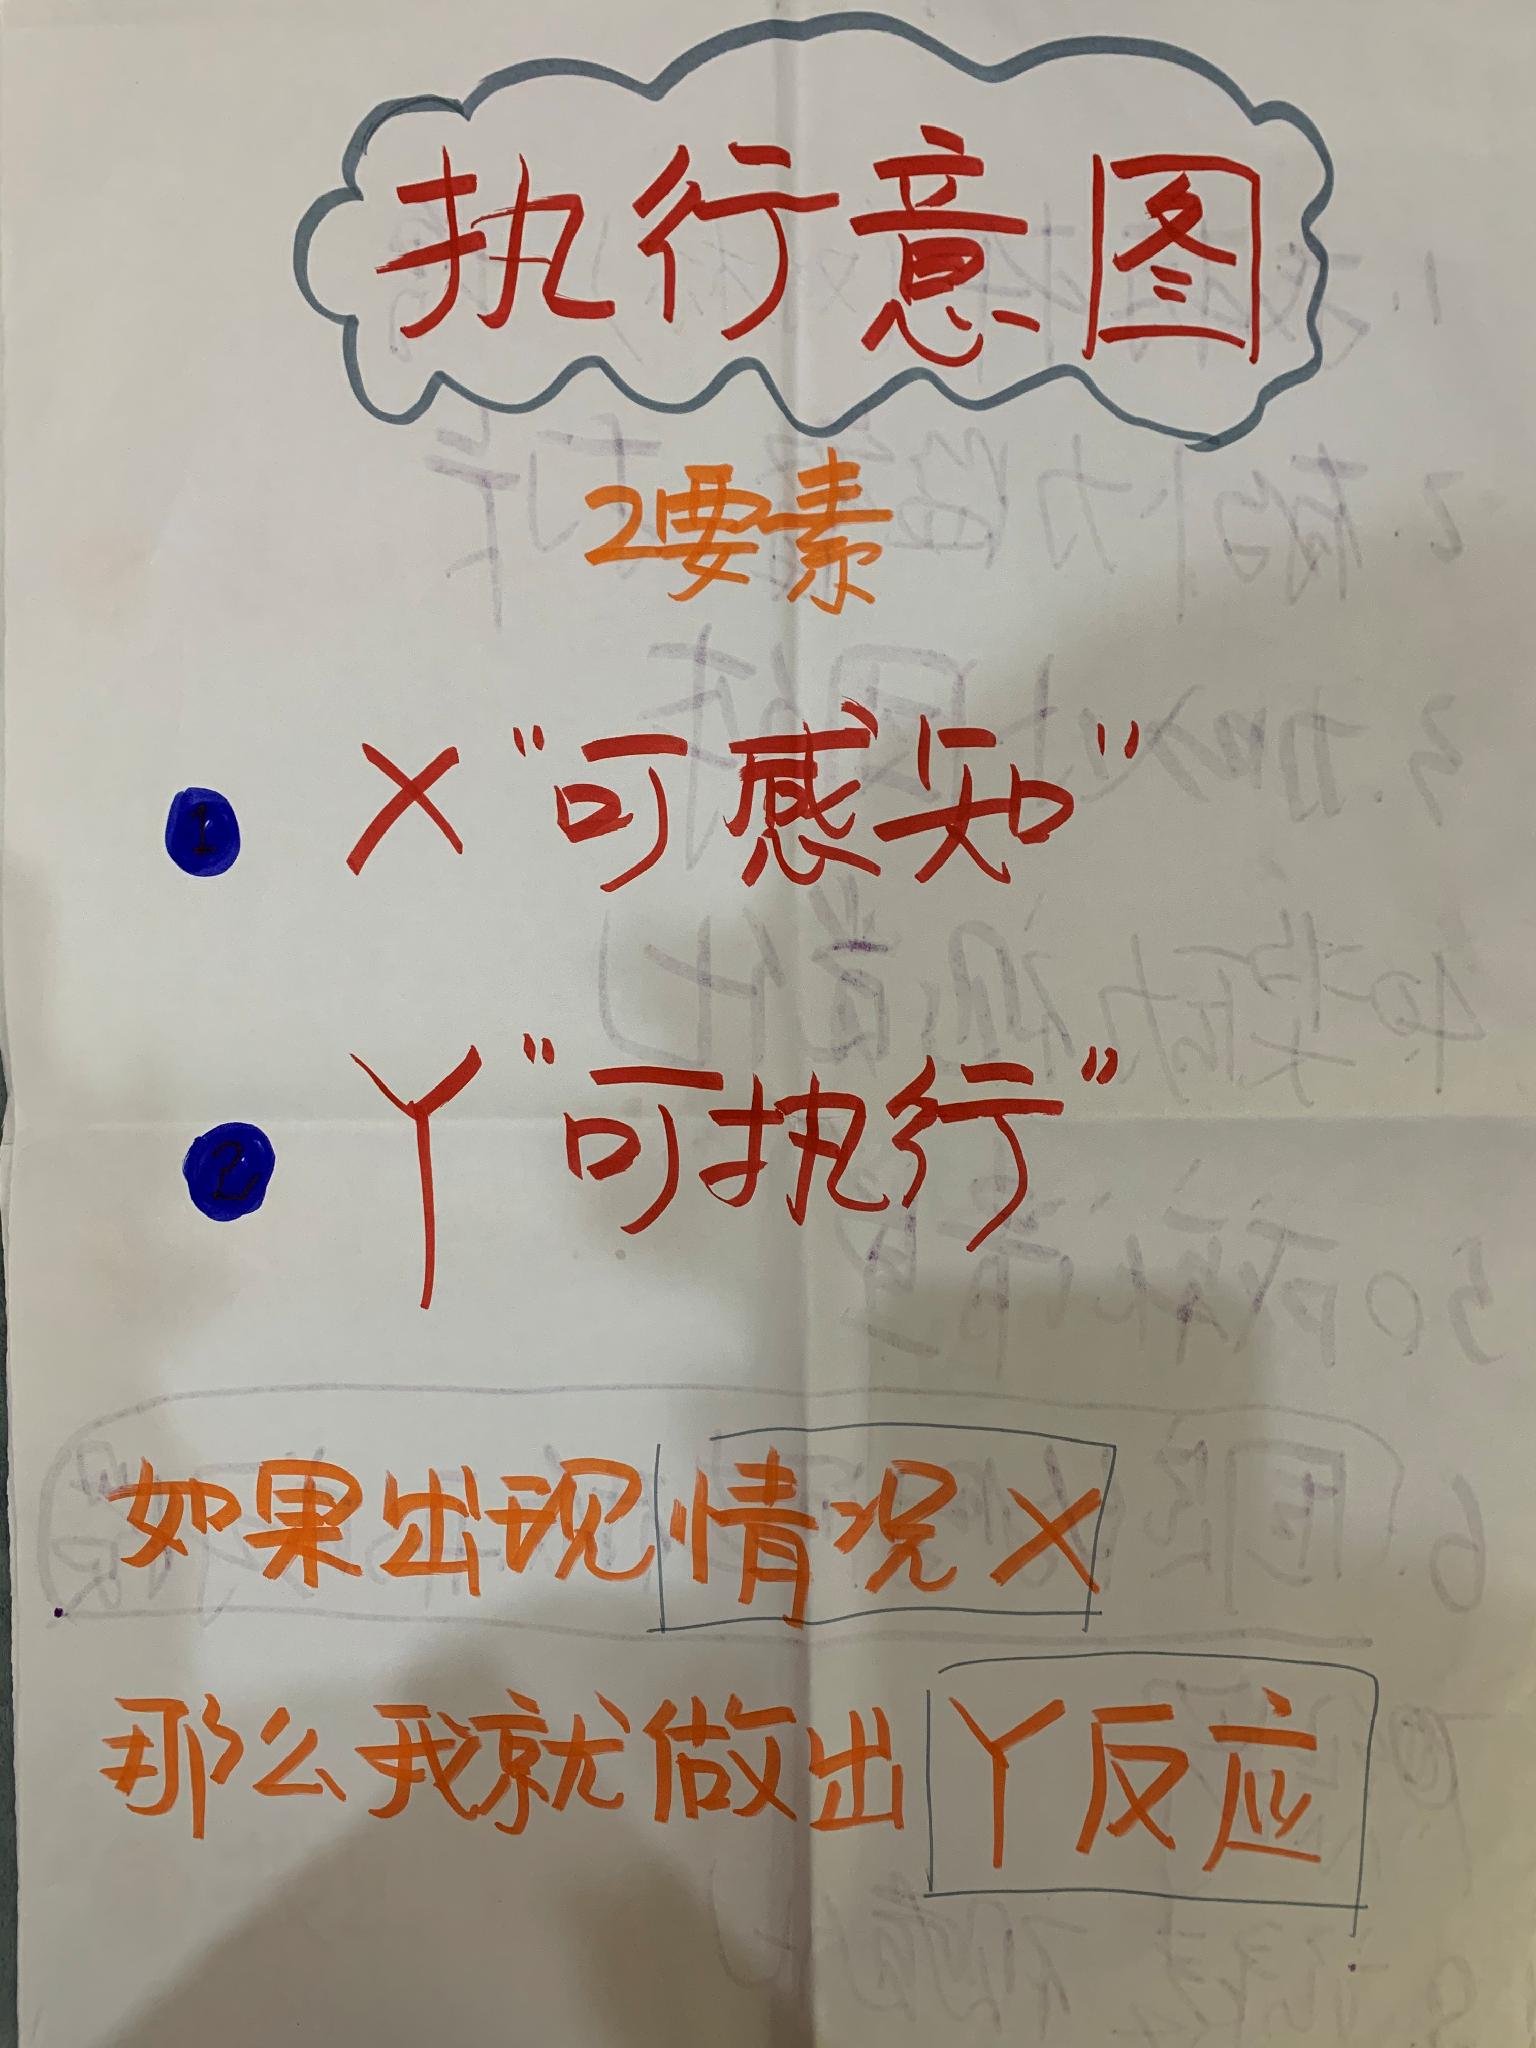 执行意图
2要素
1 X“可感知”
2 Y“可执行”
如果出现情况X
那么我就做出Y反应